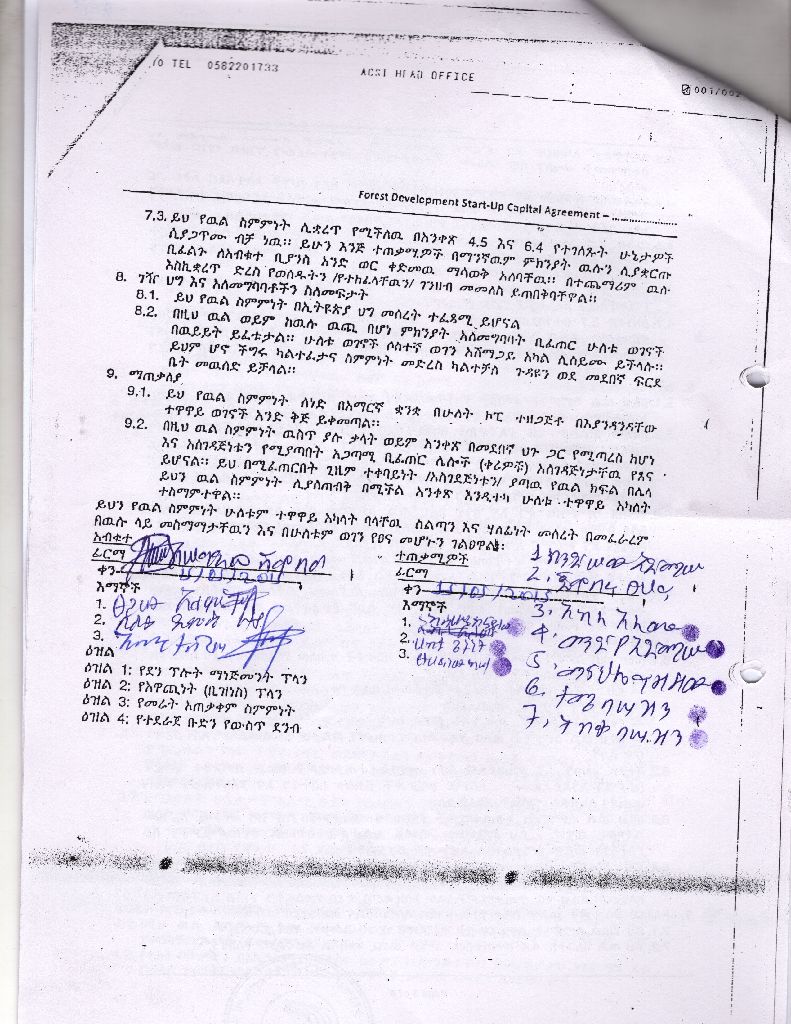 /O TEL 0582201733 ACSI HEAD OFFICE 001/002
Forest Development Start-Up Capital Agreement – ......................
7.3. ይህ የዉል ስምምነት ሊቋረጥ የሚችለዉ በአንቀጽ 4.5 እና 6.4 የተገለጹት ሁኔታዎች
ሲያጋጥሙ ብቻ ነዉ። ይሁን እንጅ ተጠቃሚዎች በማንኛዉም ምክንያት ዉሉን ሊያቋርጡ
ቢፈልጉ ለአብቁተ ቢያንስ አንድ ወር ቀድመዉ ማሳወቅ አለባቸዉ። በተጨማሪም ዉሉ
እስኪቋረጥ ድረስ የወሰዱትን /የተከፈላቸዉን/ ገንዘብ መመለስ ይጠበቅባቸዋል።
8. ገዥ ህግ እና አለመግባባቶችን ስለመፍታት
8.1. ይህ የዉል ስምምነት በኢትዩጵያ ህግ መሰረት ተፈጻሚ ይሆናል
8.2. በዚህ ዉል ወይም ከዉሉ ዉጪ በሆነ ምክንያት አለመግባባት ቢፈጠር ሁለቱ ወገኖች
በዉይይት ይፈቱታል። ሁለቱ ወገኖች ሶስተኛ ወገን አሸማጋይ አካል ሊሰይሙ ይችላሉ።
ይህም ሆኖ ችግሩ ካልተፈታና ስምምነት መድረስ ካልተቻለ ጉዳዩን ወደ መደበኛ ፍርድ
ቤት መዉሰድ ይቻላል።
9. ማጠቃለያ
9.1. ይህ የዉል ስምምነት ሰነድ በአማርኛ ቋንቋ በሁለት ኮፒ ተዘጋጅቶ በእያንዳንዳቸው
ተዋዋይ ወገኖች አንድ ቅጅ ይቀመጣል።
9.2. በዚህ ዉል ስምምነት ዉስጥ ያሉ ቃላት ወይም አንቀጽ በመደበኛ ህጉ ጋር የሚጣረስ ከሆነ
እና አስገዳጅነቱን የሚያጣበት አጋጣሚ ቢፈጠር ሌሎች (ቀሪዎች) አስገዳጅነታቸዉ የጸና
ይሆናል። ይህ በሚፈጠርበት ጊዜም ተቀባይነት /አስገደጅነቱን/ ያጣዉ የዉል ክፍል በሌላ
ይህን ዉል ስምምነት ሊያስጠብቅ በሚችል አንቀጽ እንዲተካ ሁለቱ ተዋዋይ አካላት
ተስማምተዋል።
ይህን የዉል ስምምነት ሁለቱም ተዋዋይ አካላት ባላቸዉ ስልጣን እና ሃላፊነት መሰረት በመፈራረም
በዉሉ ላይ መስማማታቸዉን እና በሁለቱም ወገን የፀና መሆኑን ገልፀዋል፡
አብቁተ
ፊርማ
ቀን
እማኞች
1.
2.
3.
ተጠቃሚዎች
ፊርማ
ቀን
እማኞች
1.
2.
3.
1
2.
3.
4.
5.
6.
7.
ዕዝል
ዕዝል 1: የደን ፕሎት ማኔጅመንት ፕላን
ዕዝል 2: የአዋጪነት (ቢዝነስ) ፕላን
ዕዝል 3: የመሬት አጠቃቀም ስምምነት
ዕዝል 4: የተደራጀ ቡድን የውስጥ ደንብ